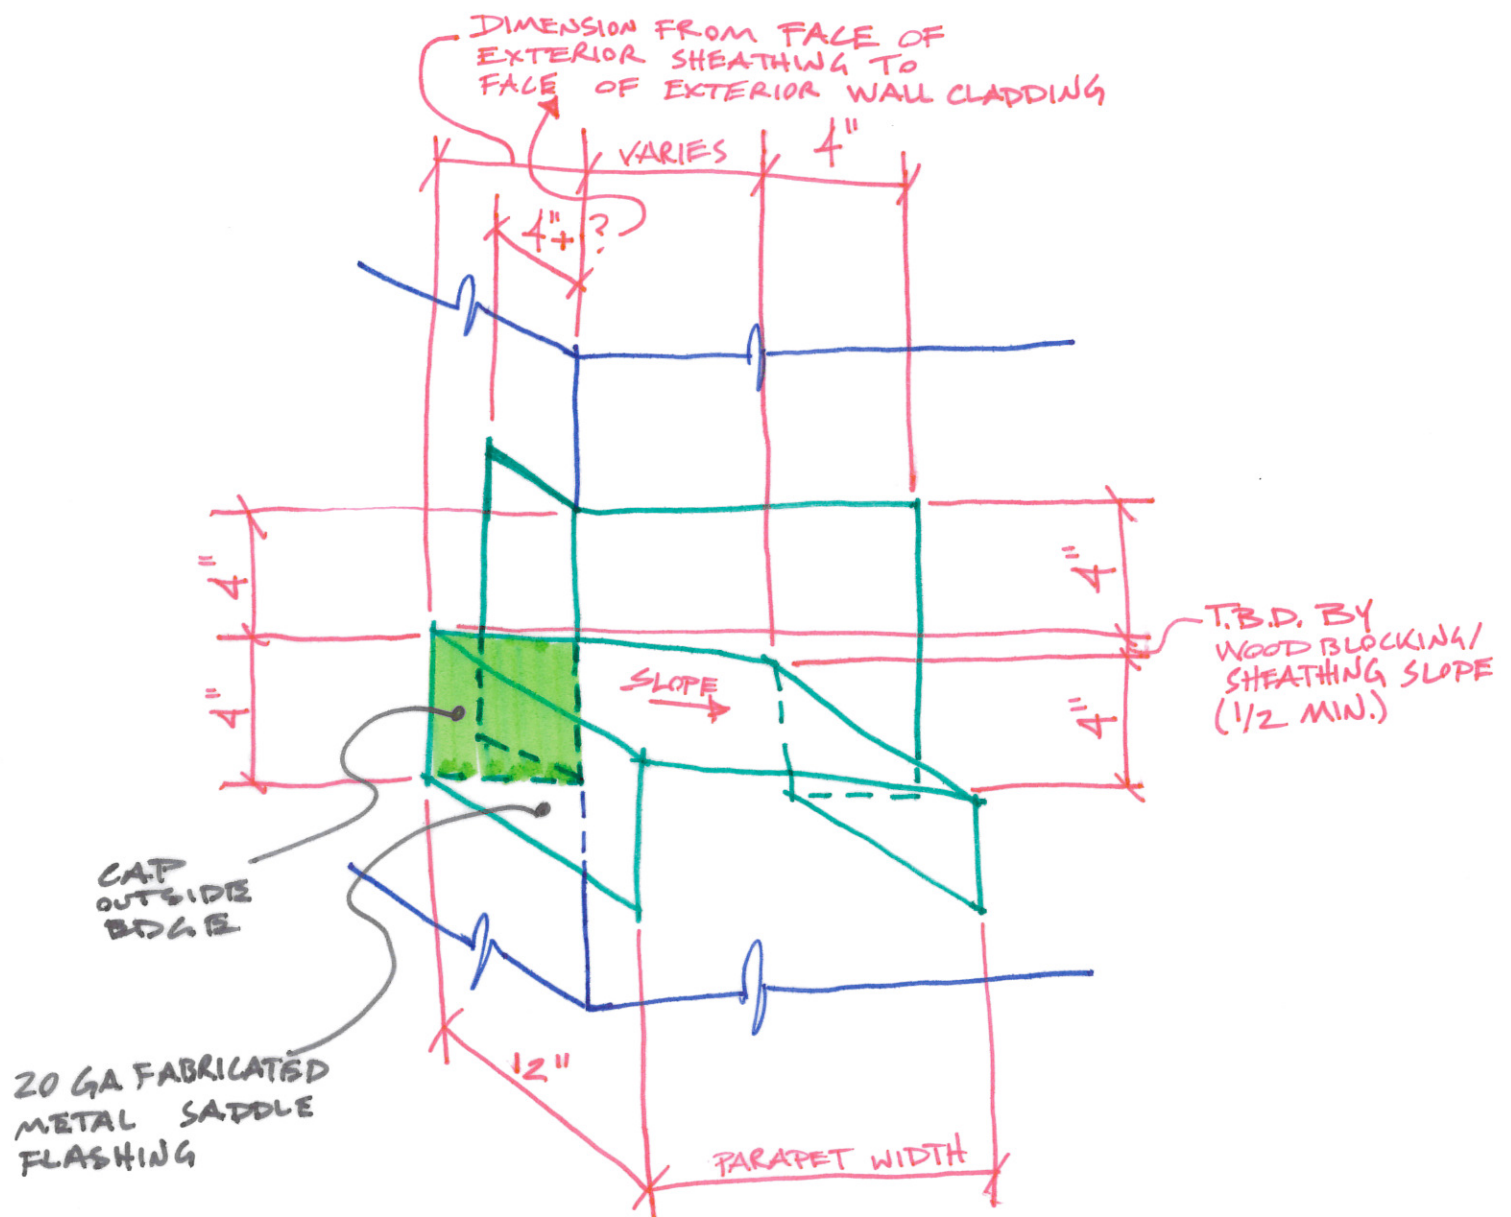 DIMENSION FROM FACE OF
EXTERIOR SHEATHING TO
FACE OF EXTERIOR WALL CLADDING
VARIES
4"
4"+ ?
4"
4"
4"
4"
T.B.D. BY
WOOD BLOCKING/
SHEATHING SLOPE
(1/2 MIN.)
SLOPE
CAP
OUTSIDE
EDGE
20 GA FABRICATED
METAL SADDLE
FLASHING
12"
PARAPET WIDTH